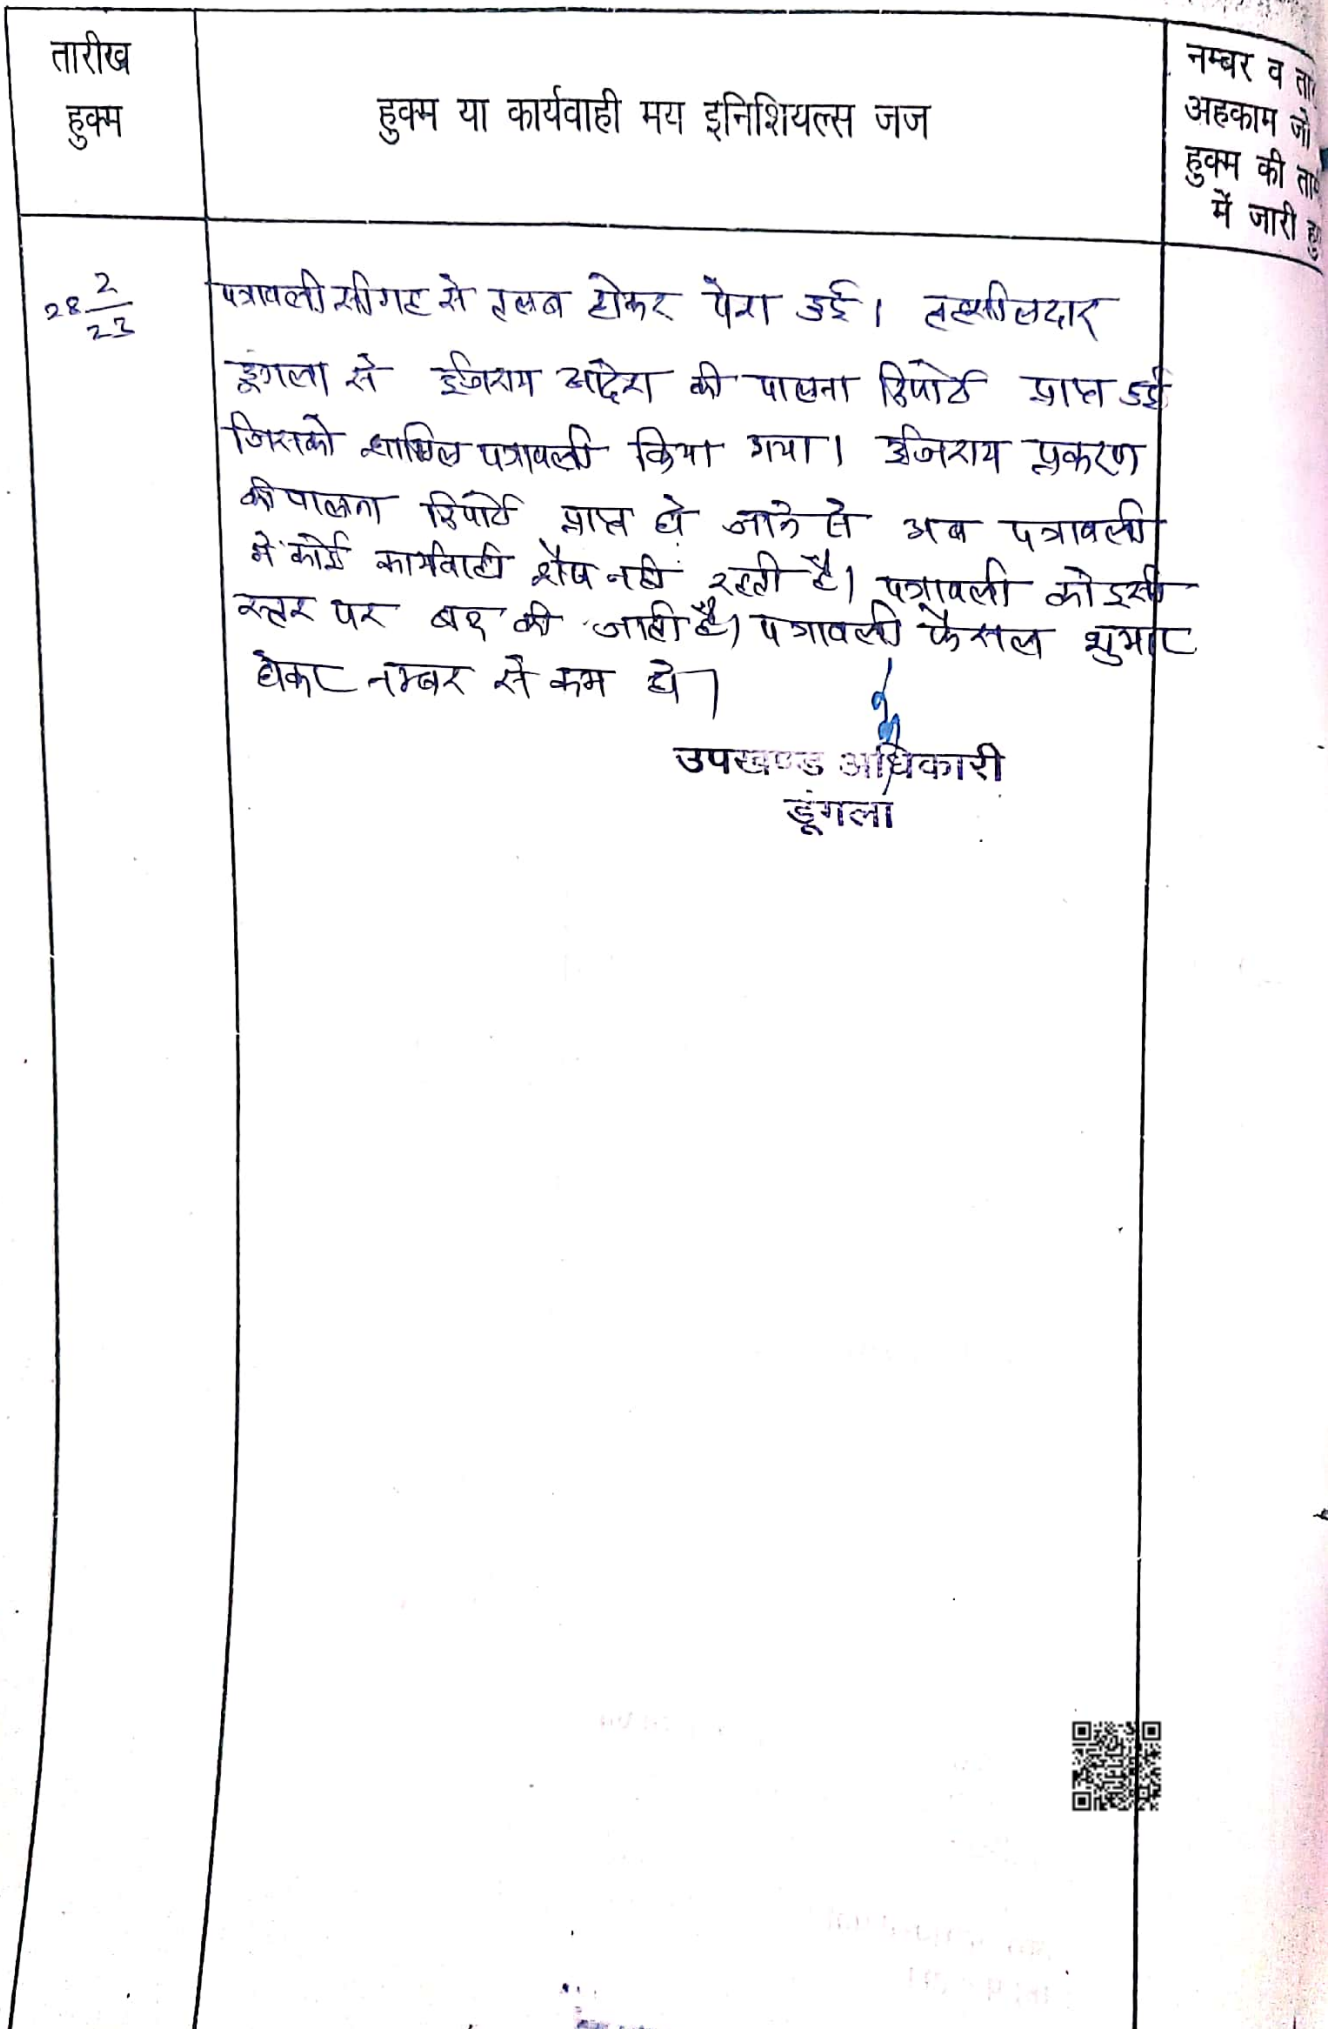 तारीख
हुक्म
हुक्म या कार्यवाही मय इनिशियल्स जज
नम्बर व ता
अहकाम जो
हुक्म की ता
में जारी हु
28 2/23
पत्रावली सीगह से तलब होकर पेश हुई। तहसीलदार
डूंगला से ईजराय आदेश की पालना रिपोर्ट प्राप्त हुई
जिसको शामिल पत्रावली किया गया। ईजराय प्रकरण
की पालना रिपोर्ट प्राप्त हो जाने से अब पत्रावली
में कोई कार्यवाही शेष नहीं रहती है। पत्रावली को इसी
स्तर पर बंद की जाती है। पत्रावली फैसल शुमार
होकर नम्बर से कम हो।
उपखण्ड अधिकारी
डूंगला